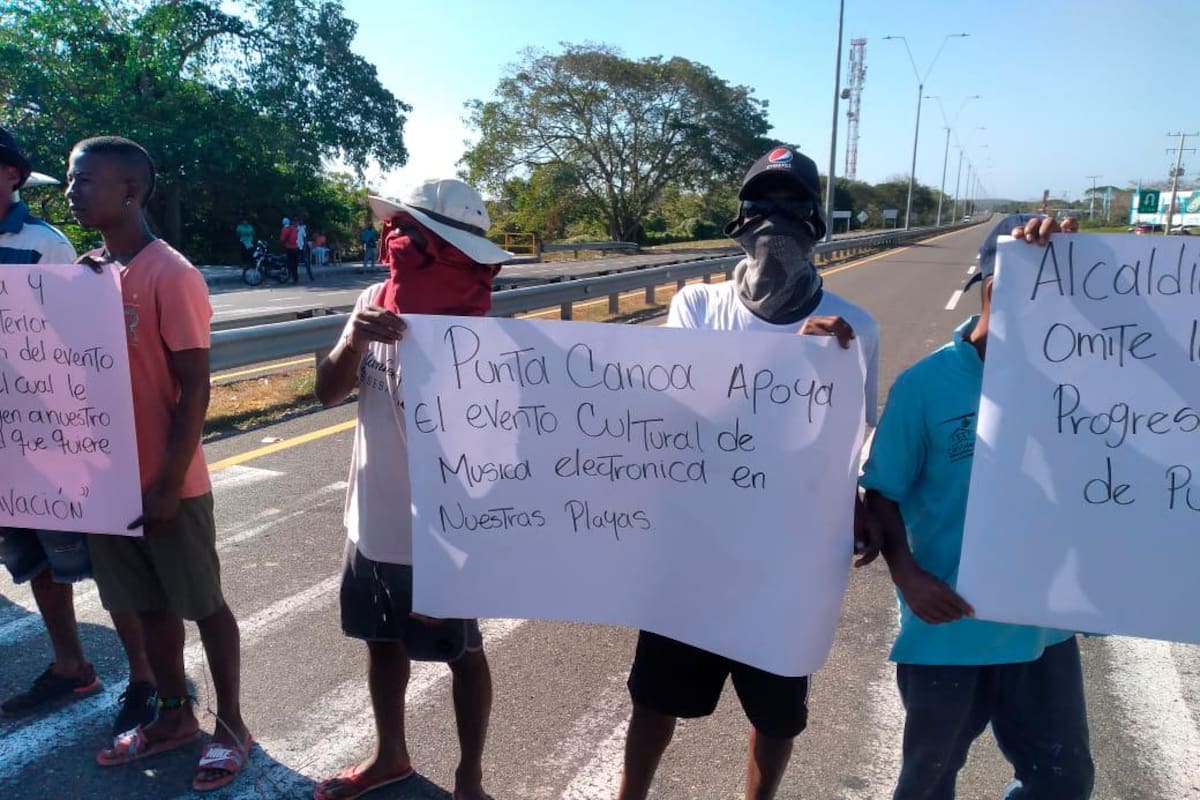 a y
terior
n del evento
l cual le
gen a nuestro
d que quiere
ivación"
Punta Canoa Apoya
El evento Cultural de
Musica electronica en
Nuestras Playas.
Alcaldi
Omite l
Progres
de Pu
pepsi
NIKE